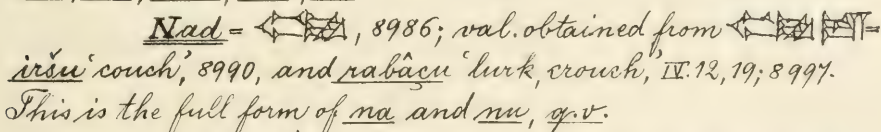 Nad = , 8986; val. obtained from =
iršu 'couch,' 8990, and rabâçu 'lurk, crouch,' IV. 12, 19; 8997.
This is the full form of na and nu, q.v.